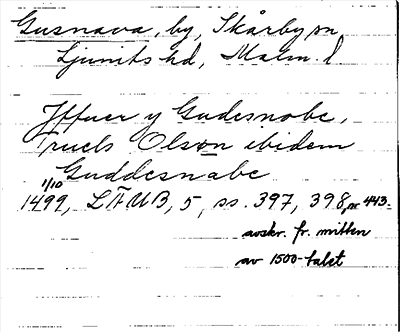 Gusnava, by, Skårby sn
Ljunits hd, Malm. l.
Jffuer y Gudesnobe,
Truels Olson ibidem
Guddesnabe
1/10
1499, LÄUB, 5, ss. 397, 398, nr 443.
avskr. fr. mitten
av 1500-talet